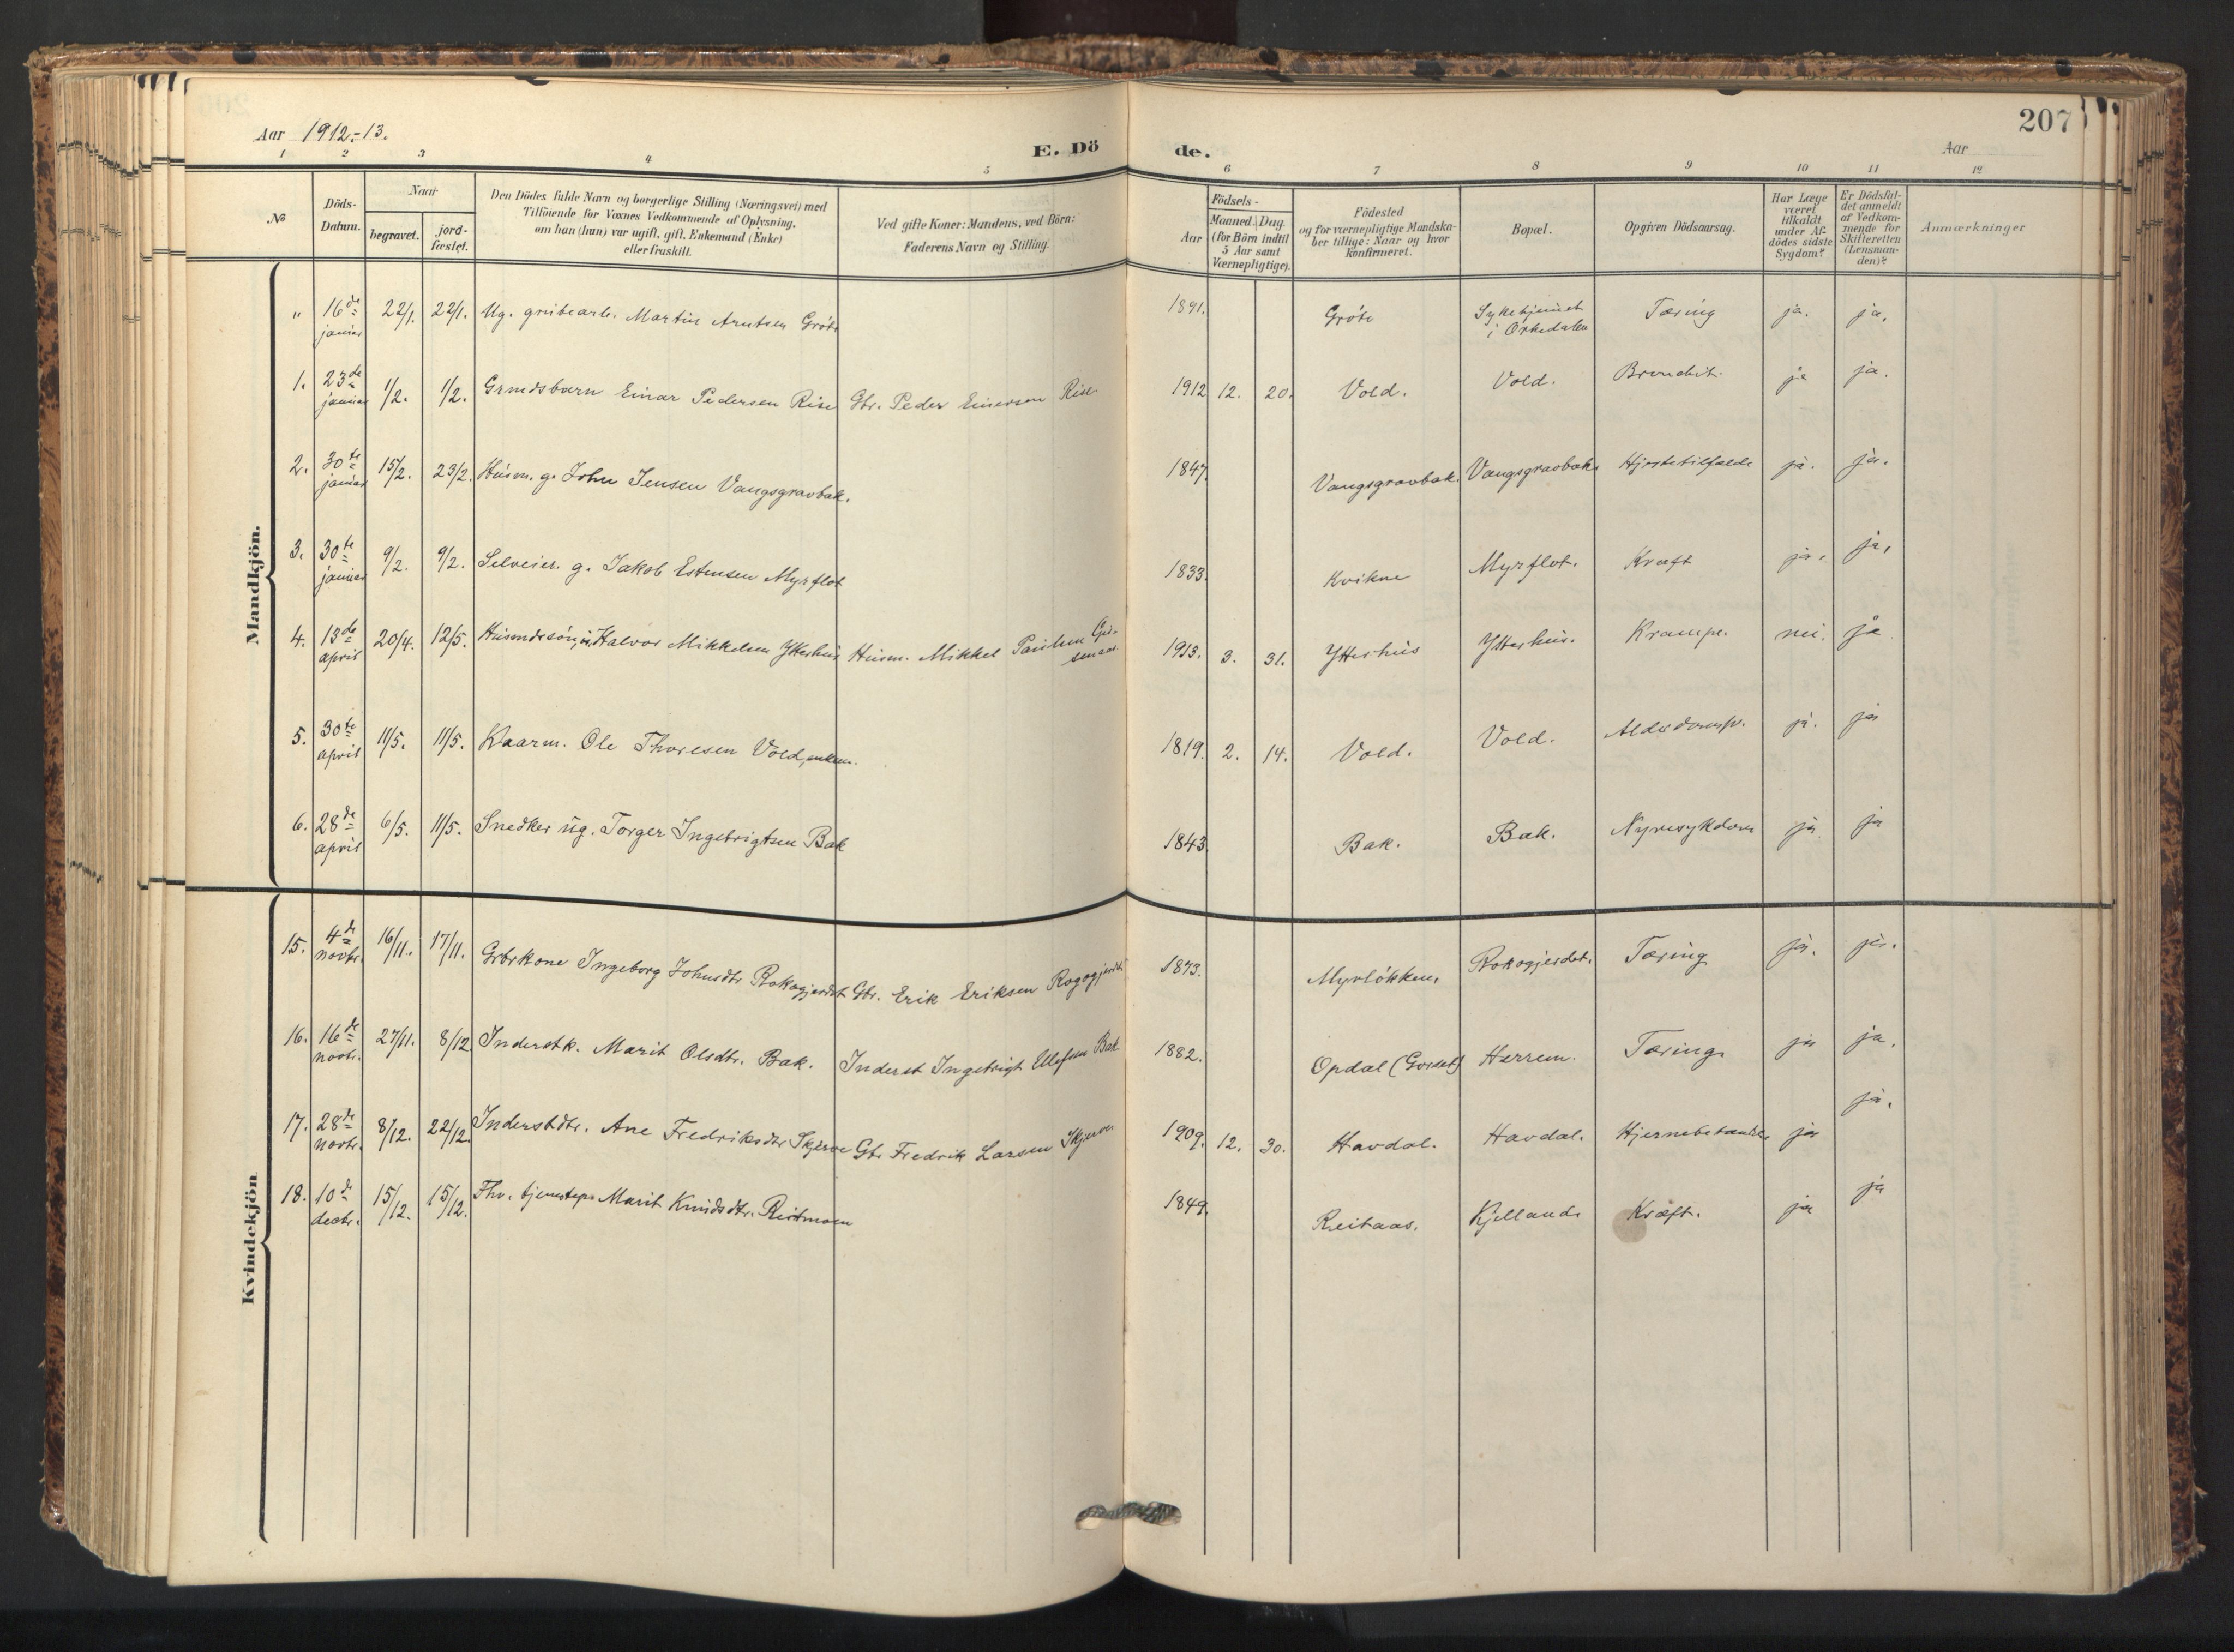 207
Aar 1912-13.
E. Döde.
Aar
1 2 3 4 5 6 7 8 9 10 11 12
No
Döds-Datum.
Naar
begravet.
jord-fæstet.
Den Dödes fulde Navn og borgerlige Stilling (Næringsvei) med
Tilföiende for Voxnes Vedkommende af Oplysning,
om han (hun) var ugift, gift, Enkemand (Enke)
eller fraskilt.
Ved gifte Koner: Mandens, ved Börn:
Faderens Navn og Stilling.
Födsels-
Aar
Maaned. Dag.
(for Börn indtil
5 Aar samt
Værnepligtige).
Födested
og for værnepligtige Mandska-
ber tillige: Naar og hvor
konfirmeret.
Bopæl.
Opgiven Dödsaarsag.
Har Læge
været
tilkaldt
under Af-
dödes sidste
Sygdom?
Er Dödsfal-
det anmeldt
af Vedkom-
mende for
Skifteretten
(Lensman-
den)?
Anmærkninger
Mandkjön.
" 16de januar 22/1. 22/1. Ug. grubearb. Martin Arntsen Gröte 1891. Gröte Sykehjemmet i Orkedalen Tæring ja. ja.
1. 23de januar 1/2. 1/2. Grmdsbarn Einar Pedersen Rise Gbr. Peder Einersen Rise 1912 12. 20. Vold. Vold. Bronchit. ja ja.
2. 30te januar 15/2. 23/2. Husm. g. John Jensen Vangsgravbak. 1847. Vangsgravbak. Vangsgravbak. Hjertetilfælde ja. ja.
3. 30te januar 9/2. 9/2. Selveier. g. Jakob Estensen Myrflot 1833. Kvikne Myrflot. Kræft ja. ja.
4. 13de april 20/4. 12/5. Husmdssön, Halvor Mikkelsen Ytterhus Husm. Mikkel Paulsen 1913. 3. 31. Ytterhus Ytterhus. Krampe. nei. ja
5. 30te april 11/5. 11/5. Kaarm. Ole Thoresen Vold, enkem. 1819. 2. 14. Vold. Vold. Alderdomssv. ja. ja
6. 28de april 6/5. 11/5. Snedker ug. Torger Ingebrigtsen Bak 1843. Bak. Bak. Nyresykdom ja ja
Kvindekjön
15. 4de novbr. 16/11. 17/11. Gbrkone Ingeborg Johnsdtr Rokogjerdet Gbr. Erik Eriksen Rogogjerdet 1873. Myrlökken. Rokogjerdet. Tæring ja. ja.
16. 16de novbr. 27/11. 8/12 Inderstk. Marit Olsdtr. Bak. Inderst Ingebrigt Ellefsen Bak 1882. Opdal (Gorset) Herrem. Tæring. ja ja.
17. 28de novbr. 8/12. 22/12. Inderstdtr. Ane Fredriksdtr Skjerve Gbr Fredrik Larsen Skjerve 1909. 12. 30. Havdal. Havdal. Hjernebetændelse ja ja.
18. 10de decbr. 15/12. 15/12. Fhv. tjenestep. Marit Knudsdtr. Reitmoen 1849. Reitaas. Kjelland. Kræft. ja ja